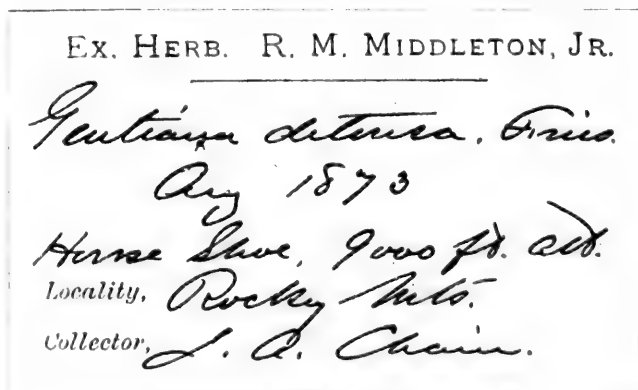 Ex. Herb. R. M. Middleton, Jr.
Gentiana detonsa. Fries.
Aug 1873
Horse Shoe, 9000 ft. alt.
Locality, Rocky Mts.
Collector, J. A. Chain.